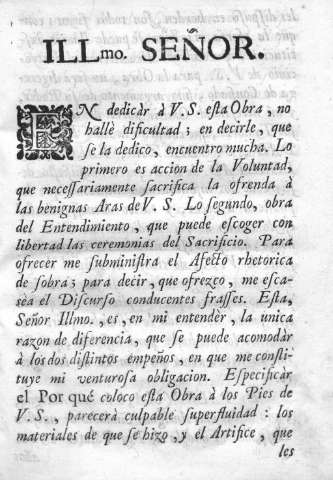 ILLmo. SEÑOR.
EN dedicàr à V.S. esta Obra, no
hallè dificultad; en decirle, que
se la dedico, encuentro mucha. Lo
primero es accion de la Voluntad,
que necessariamente sacrifica la ofrenda à
las benignas Aras de V. S. Lo segundo, obra
del Entendimiento, que puede escoger con
libertad las ceremonias del Sacrificio. Para
ofrecer me subministra el Afecto rhetorica
de sobra; para decir, que ofrezco, me esca-
sèa el Discurso conducentes frasses. Esta,
Señor Illmo. , es, en mi entendèr, la unica
razon de diferencia, que se puede acomodàr
à los dos distintos empeños, en que me consti-
tuye mi venturosa obligacion. Especificàr
el Por què coloco esta Obra à los Pies de
V. S. , parecerà culpable superfluidad: los
materiales de que se hizo, y el Artifice, que
les